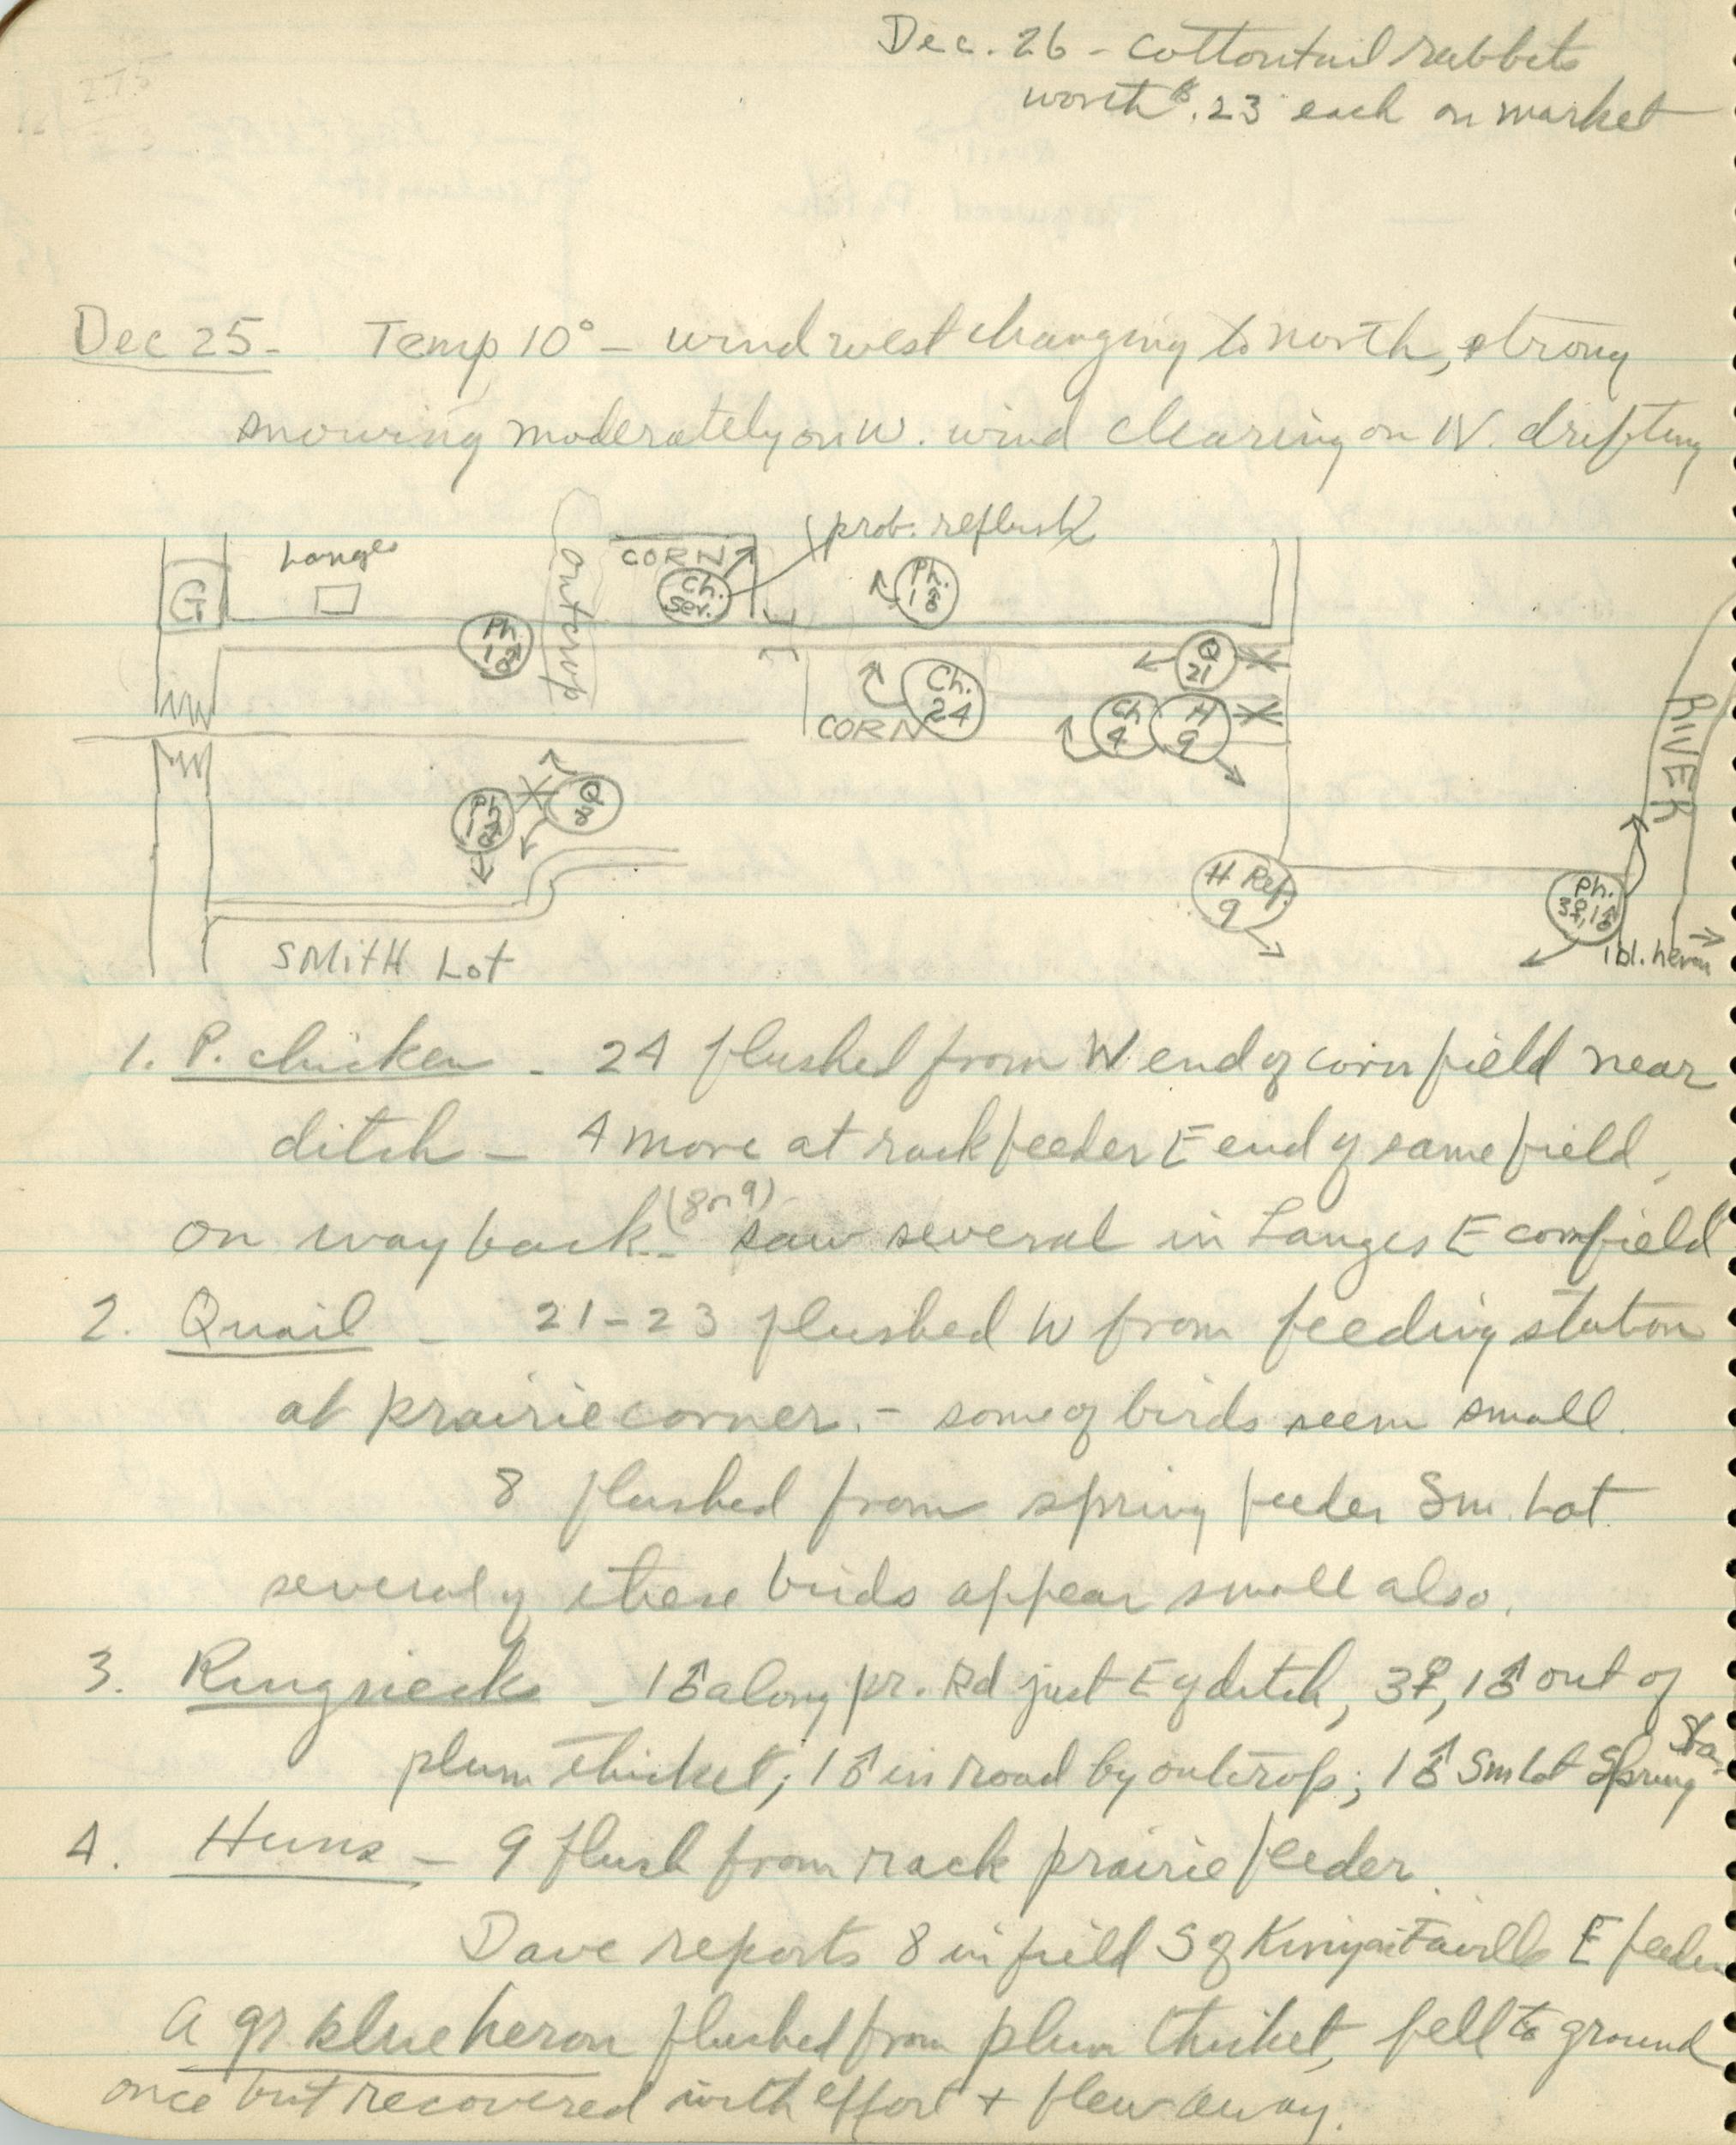 275
Dec. 26 - cottontail rabbits
worth $.23 each on market
Dec 25 - Temp 10° - wind west changing to north, strong
snowing moderately on W. wind clearing on N. drifting
prob. reflush
Langes
CORN
G
outcrop
Ch. sev.
Ph. 1♂
Ph. 1♂
Q 21
Ch. 24
CORN
Ch 4
H 9
RIVER
Ph. 1♂
Q 8
H Ref. 9
Ph. 3♀, 1♂
1 bl. heron
SMITH Lot
1. P. chicken - 24 flushed from W end of corn field near
ditch - 4 more at rack feeder E end of same field,
on way back - (8 or 9) saw several in Langes E cornfield
2. Quail - 21-23 flushed W from feeding station
at prairie corner. - some of birds seem small.
8 flushed from spring feeder Sm. Lot.
several of these birds appear small also.
3. Ringnecks - 1♂ along pr. Rd just E of ditch, 3♀, 1♂ out of
plum thicket; 1♂ in road by outcrop; 1♂ Sm Lot Spring Sta.
4. Huns - 9 flush from rack prairie feeder.
Dave reports 8 in field S of E feeder
A gr. blue heron flushed from plum thicket, fell to ground
once but recovered with effort + flew away.